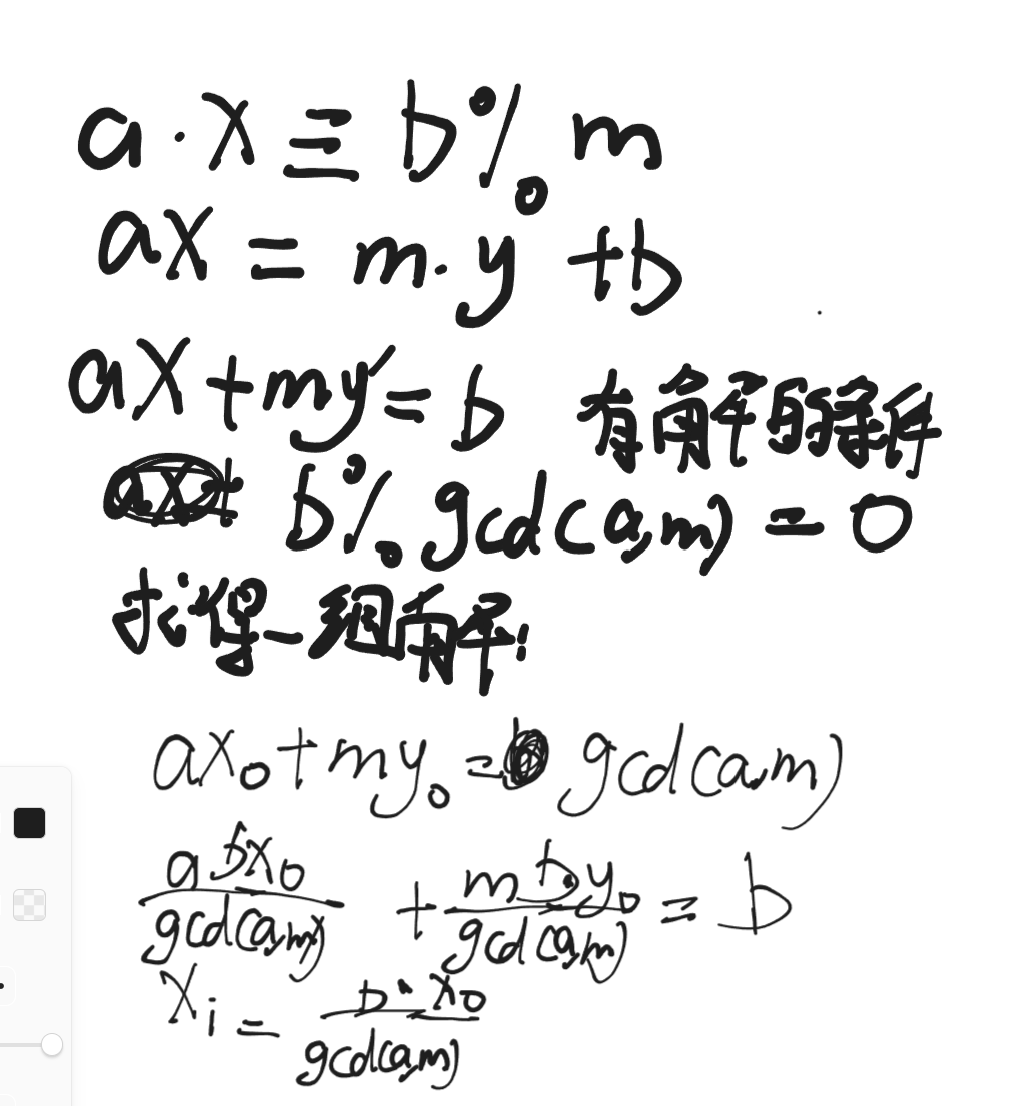 a·x ≡ b % m
ax = m·y + b
ax + my' = b 有解的条件
b % gcd(a,m) = 0
求得一组有解:
ax₀ + my₀ = gcd(a,m)
a bx₀ / gcd(a,m) + m by₀ / gcd(a,m) = b
xᵢ = b·x₀ / gcd(a,m)